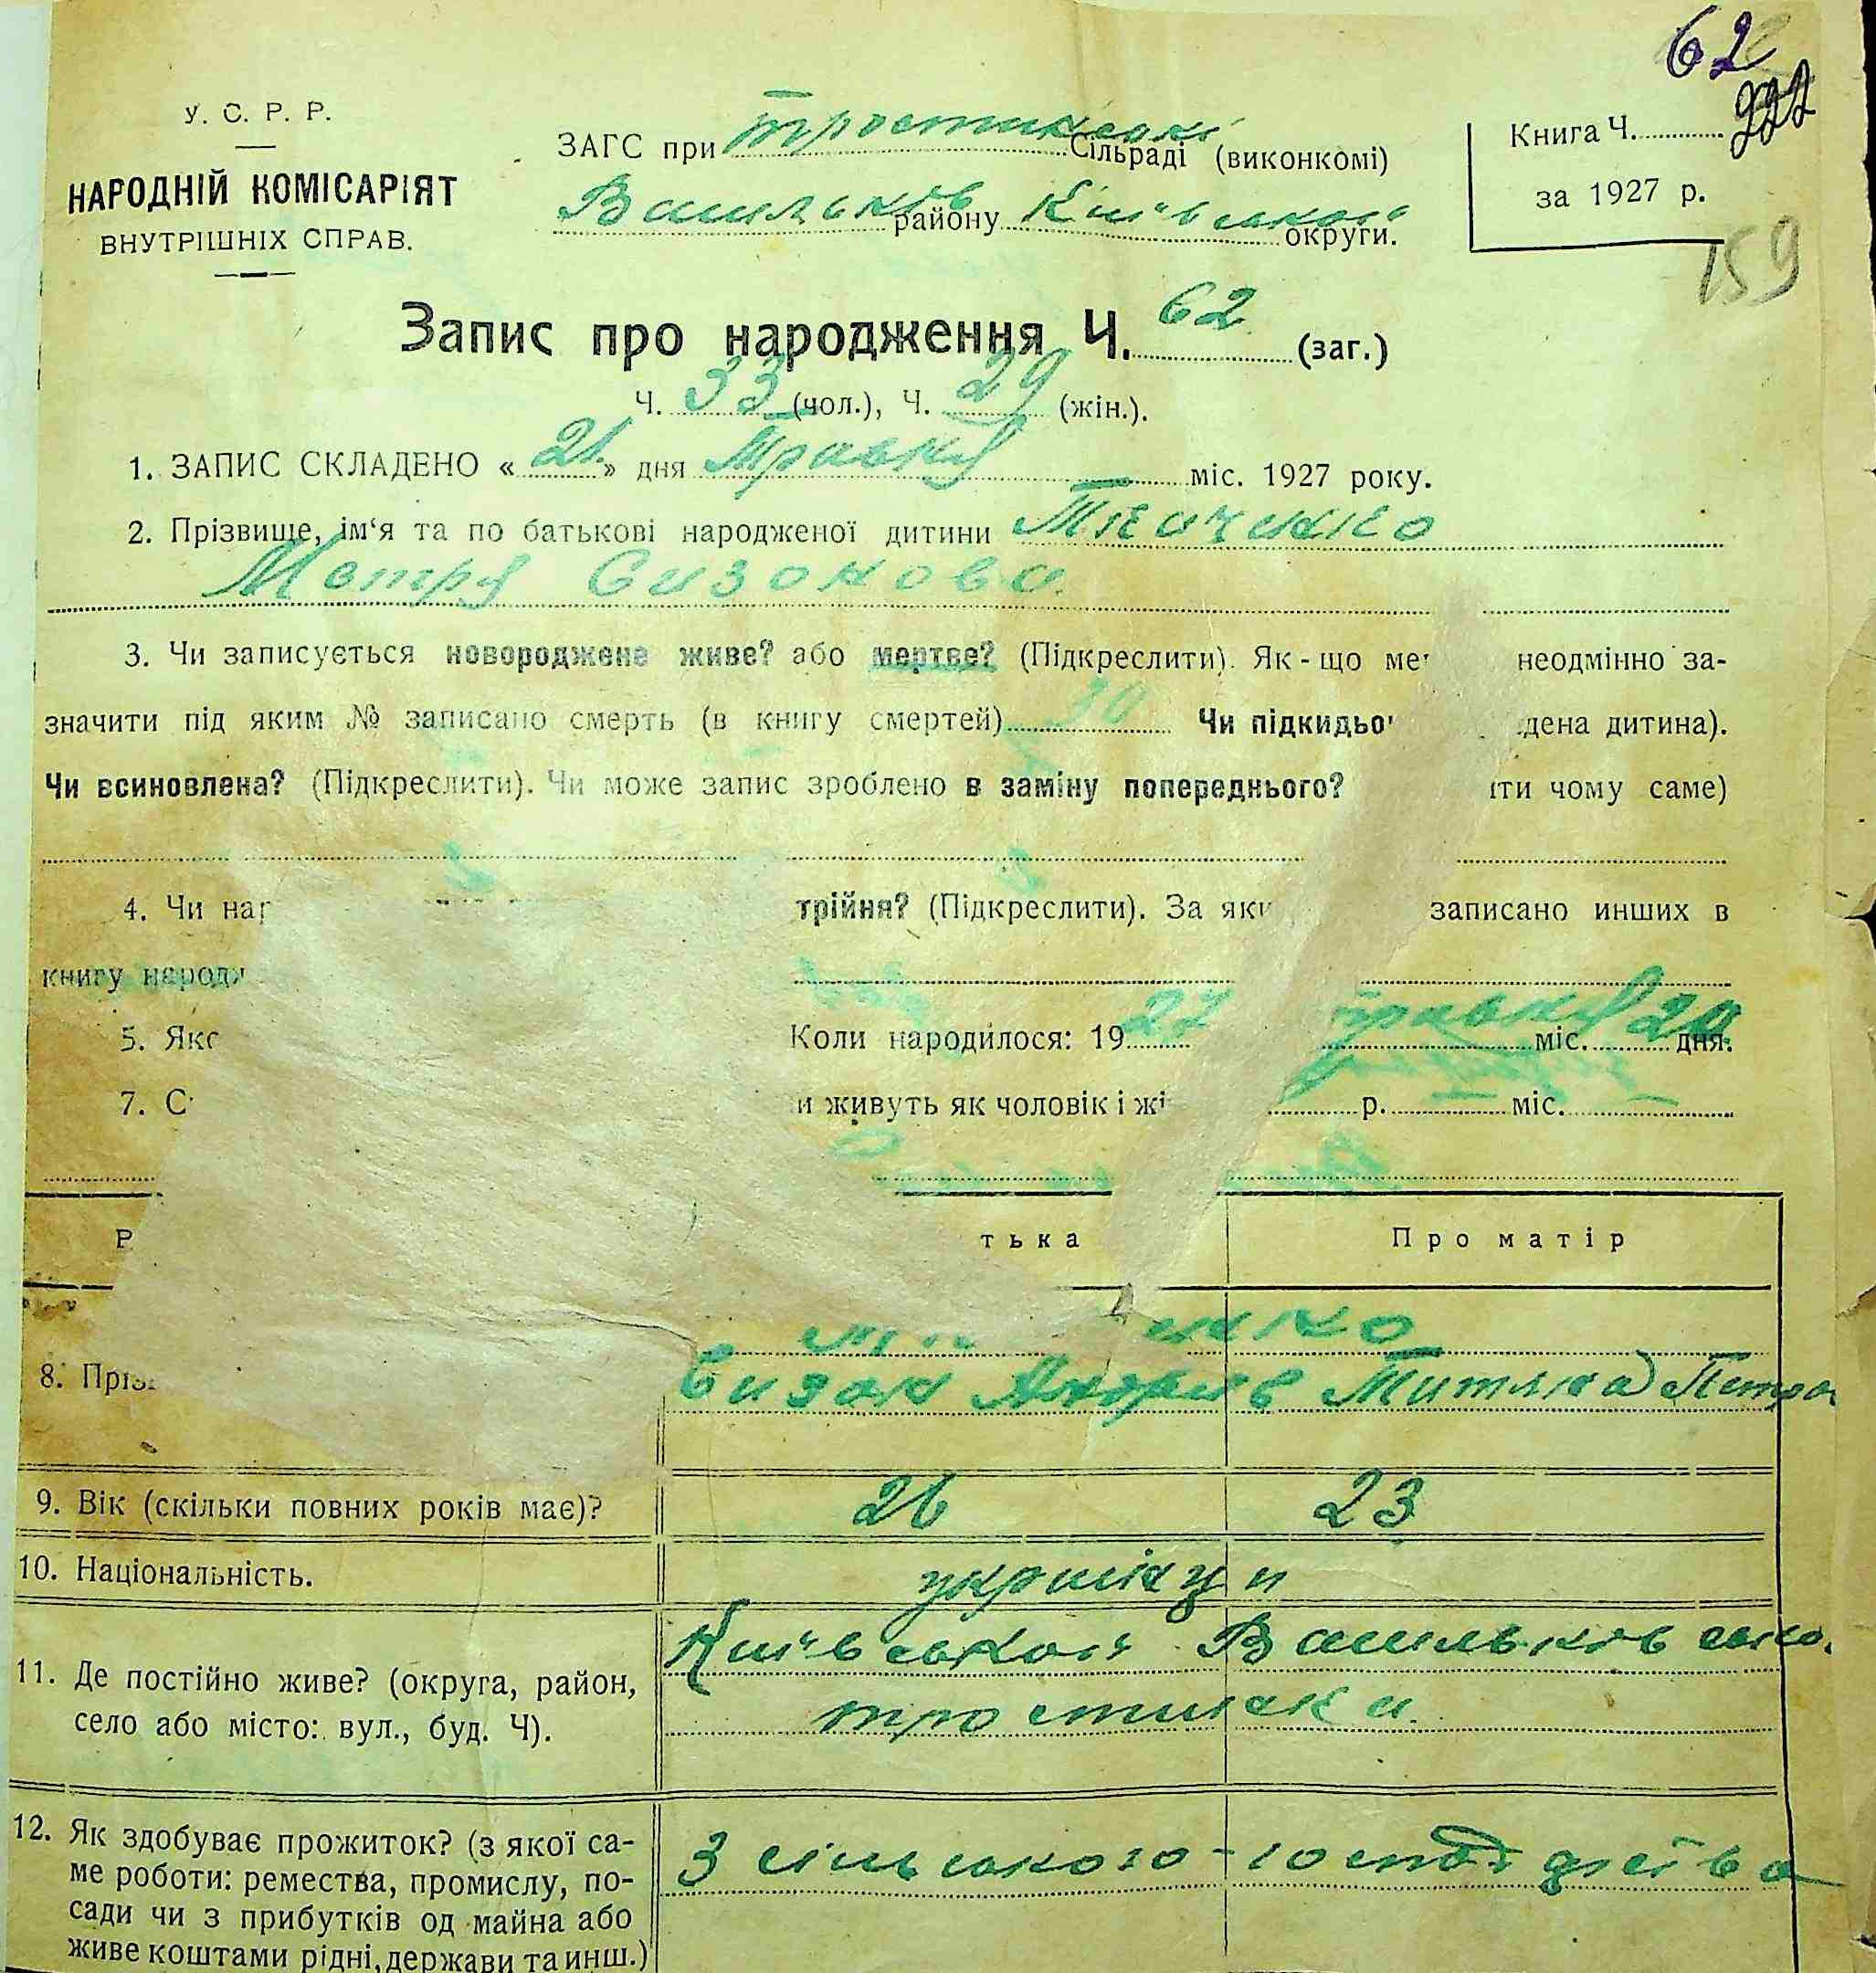 62
У. С. Р. Р.
НАРОДНІЙ КОМІСАРІЯТ
ВНУТРІШНІХ СПРАВ.
ЗАГС при Тростинській Сільраді (виконкомі)
Васильків району Київської округи.
Книга Ч.
за 1927 р.
159
Запис про народження Ч. 62 (заг.)
Ч. 33 (чол.), Ч. 29 (жін.).
1. ЗАПИС СКЛАДЕНО « 21 » дня Травня міс. 1927 року.
2. Прізвище, ім‘я та по батькові народженої дитини Ткаченко
Мотря Сизонова
3. Чи записується новороджене живе? або мертве? (Підкреслити). Як-що ме неодмінно за-
значити під яким № записано смерть (в книгу смертей) Чи підкидьо дена дитина).
Чи всиновлена? (Підкреслити). Чи може запис зроблено в заміну попереднього? ити чому саме)
4. Чи нар трійня? (Підкреслити). За яки записано инших в
книгу народж
5. Яко Коли народилося: 1927 травня міс. 20 дня.
7. С и живуть як чоловік і жі р. міс.
Р тька Про матір
нко
8. Пріз Сизон Андріїв Титяна Петро
9. Вік (скільки повних років має)? 26 23
10. Національність. українци
11. Де постійно живе? (округа, район, Київської Васильківсько
село або місто: вул., буд. Ч). Тростинка
12. Як здобуває прожиток? (з якої са-
ме роботи: ремества, промислу, по- З сільського-господарства
сади чи з прибутків од майна або
живе коштами рідні, держави та инш.)